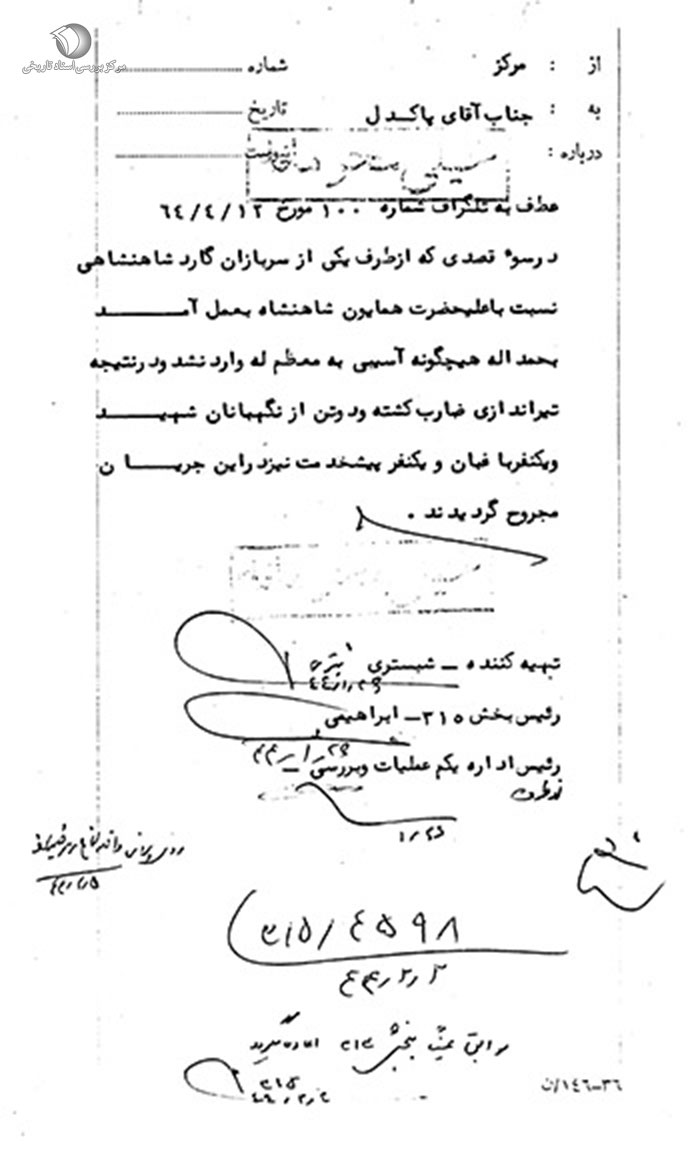 مرکز بررسی اسناد تاریخی
از : مرکز شماره
به : جناب آقای پاکدل تاریخ
درباره : پیوست
عطف به تلگراف شماره ۱۰۰ مورخ ۶۴/۴/۱۲
درسوء قصدی که ازطرف یکی از سربازان گارد شاهنشاهی
نسبت باعلیحضرت همایون شاهنشاه بعمل آمد
بحمد اله هیچگونه آسیبی به معظم له وارد نشد ودرنتیجه
تیراندازی ضارب کشته ودوتن از نگهبانان شهید
ویکنفربا غبان و یکنفر پیشخدمت نیزدراین جریان
مجروح گردیدند .
تهیه کننده ـ شبستری
۴۴/۱/۲۹
رئیس بخش ۳۱۵ـ ابراهیمی
۴۴/۱/۲۹
رئیس اداره یکم عملیات وبررسی ـ
۳۱۵/۴۵۹۸
۴۴/۲/۲
بخش ۳۱۲
۳۱۵
۴۴/۲/۲
۳۶-۱۴۶/ن